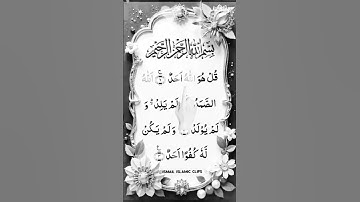 بِسْمِ اللهِ الرَّحْمٰنِ الرَّحِيْمِ
قُلْ هُوَ اللهُ اَحَدٌ ۚ اَللهُ
الصَّمَدُ ۚ لَمْ يَلِدْ ۙ وَ
لَمْ يُوْلَدْ ۙ وَلَمْ يَكُنْ
لَّهٗ كُفُوًا اَحَدٌ
ISMAIL ISLAMIC CLIPS